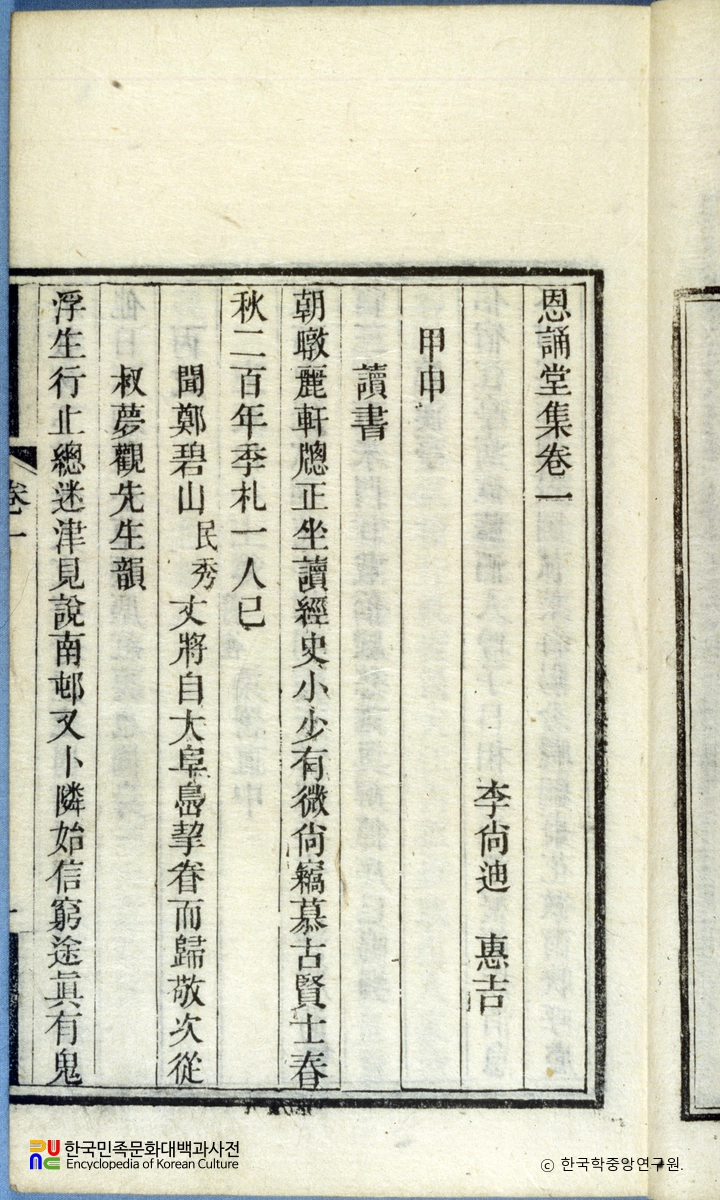 恩誦堂集卷一
李尙迪 惠吉
甲申
讀書
朝暾麗軒牕正坐讀經史小少有微尙竊慕古賢士春
秋二百年季札一人已
聞鄭碧山民秀丈將自大阜島挈眷而歸敬次從
叔夢觀先生韻
浮生行止總迷津見說南邨又卜隣始信窮途眞有鬼
卷一
한국민족문화대백과사전
Encyclopedia of Korean Culture
ⓒ 한국학중앙연구원.